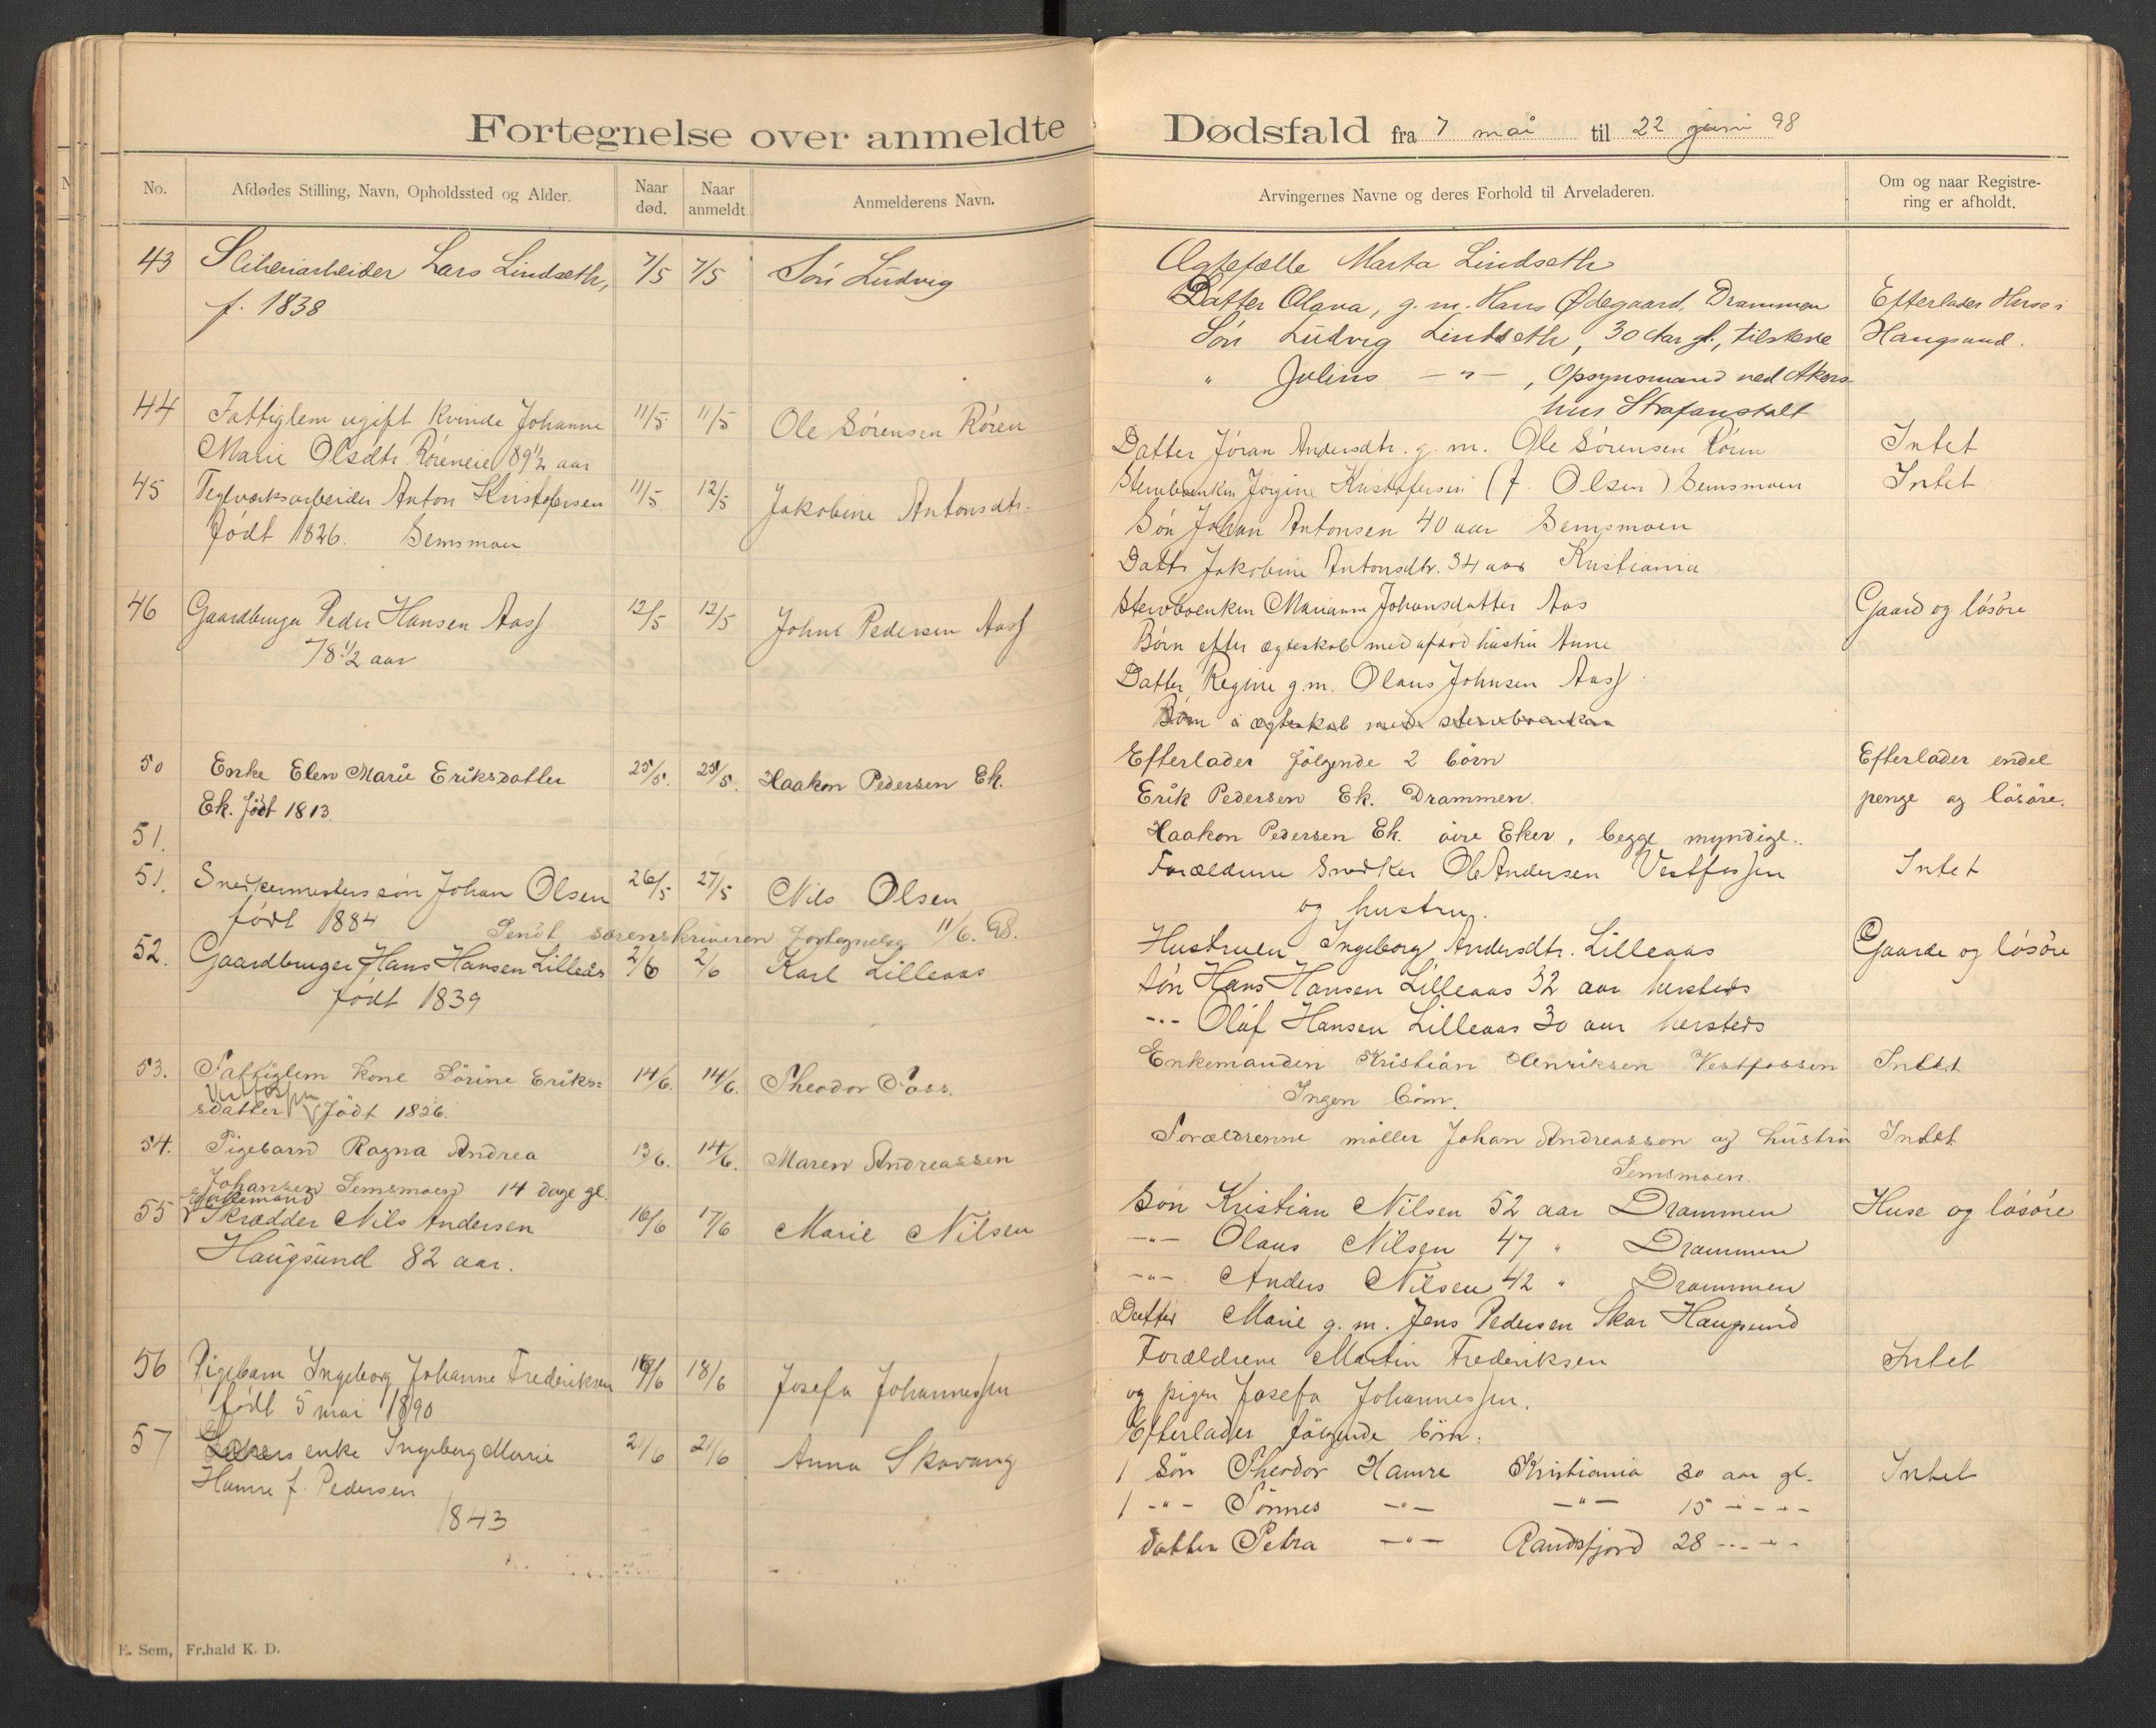 Fortegnelse over anmeldte Dødsfald fra 7 mai til 22 juni 98
No.
Afdødes Stilling, Navn, Opholdssted og Alder.
Naar død.
Naar anmeldt
Anmelderens Navn.
Arvingernes Navne og deres Forhold til Arveladeren.
Om og naar Registrering er afholdt.
43 Sliberiarbeider Lars Lindseth, 7/5 7/5 Søn Ludvig
f. 1838
Ægtefælle Marta Lindseth
Datter Olava, g. m. Hans Ødegaard, Drammen Efterlader Huse i
Søn Ludvig Lindseth, 30 Aar gl., tilstede Haugsund.
" Julius — " — , Opsynsmand ved Akers-
hus Strafanstalt
44 Fattiglem ugift Kvinde Johanne 11/5 11/5 Ole Sørensen Røren
Marie Olsdtr. Røreneie 89 1/2 aar
Datter Jøran Andersdtr. g. m. Ole Sørensen Røren Intet
45 Teglværksarbeider Anton Kristofersen 11/5 12/5 Jakobine Antonsdtr.
Født 1826. Semsmoen
Stervboenken Jørgine Kristofersen (f. Olsen) Semsmoen Intet
Søn Johan Antonsen 40 aar Semsmoen
Datter Jakobine Antonsdtr. 34 aar Kristiania
46 Gaardbruger Peder Hansen Aass 12/5 12/5 Johne Pedersen Aass
78 1/2 aar
Stervboenken Marianne Johansdatter Aas Gaard og løsøre
Børn efter ægteskab med afdød hustru Anne
Datter Regine g. m. Olaus Johnsen Aass
Børn i ægteskab med stervboenken
50 Enke Elen Marie Eriksdatter 25/5. 25/5. Haakon Pedersen Ek.
Ek. Født 1813.
Efterlader følgende 2 børn Efterlader endel
Erik Pedersen Ek. Drammen. penge og løsøre.
Haakon Pedersen Ek. øvre Eker, begge myndige.
51.
51. Snekermesters søn Johan Olsen 26/5 27/5 Nils Olsen
født 1884
Forældrene Snedker Ole Andersen Vestfossen Intet
og hustru.
Sendt sorenskriveren fortegnelse 11/6. 98.
52. Gaardbruger Hans Hansen Lilleaas 2/6 2/6 Karl Lilleaas
født 1839
Hustruen Ingeborg Andersdtr. Lilleaas Gaarde og løsøre
Søn Hans Hansen Lilleaas 32 aar hersteds
-"- Olaf Hansen Lilleaas 30 aar hersteds
53. Fattiglem kone Sørine Eriks= 14/6. 14/6. Theodor Foss.
sdatter Vestfossen Født 1826.
Enkemanden Kristian Henriksen Vestfossen Intet
Ingen børn.
54. Pigebarn Ragna Andrea 13/6. 14/6. Maren Andreassen
Johansen Semsmoen 14 dage gl.
Forældrenne møller Johan Andreassen og hustru Intet
Semsmoen.
Enkemand
55 Skrædder Nils Andersen 16/6 17/6 Marie Nilsen
Haugsund 82 aar.
Søn Kristian Nilsen 52 aar Drammen Huse og løsøre
-"- Olaus Nilsen 47 " Drammen
-"- Anders Nilsen 42 " Drammen
Datter Marie g. m. Jens Pedersen Skar Haugsund
56 Pigebarn Ingeborg Johanne Frederiksen /6 18/6 Josefa Johannessen
født 5 mai 1890
Forældrene Martin Frederiksen Intet
og pigen Josefa Johannessen.
57 enke Ingeborg Marie 21/6 21/6 Anna Skavang
Hamre f. Pedersen
1843
Efterlader følgende børn:
1 Søn Theodor Hamre Kristiania 30 aar gl. Intet
1 -"- Tønnes -"- -"- 15 -"- -"-
datter Petra -"- Randsfjord 28 -"- -"-
E. Sem, Fr.hald K. D.